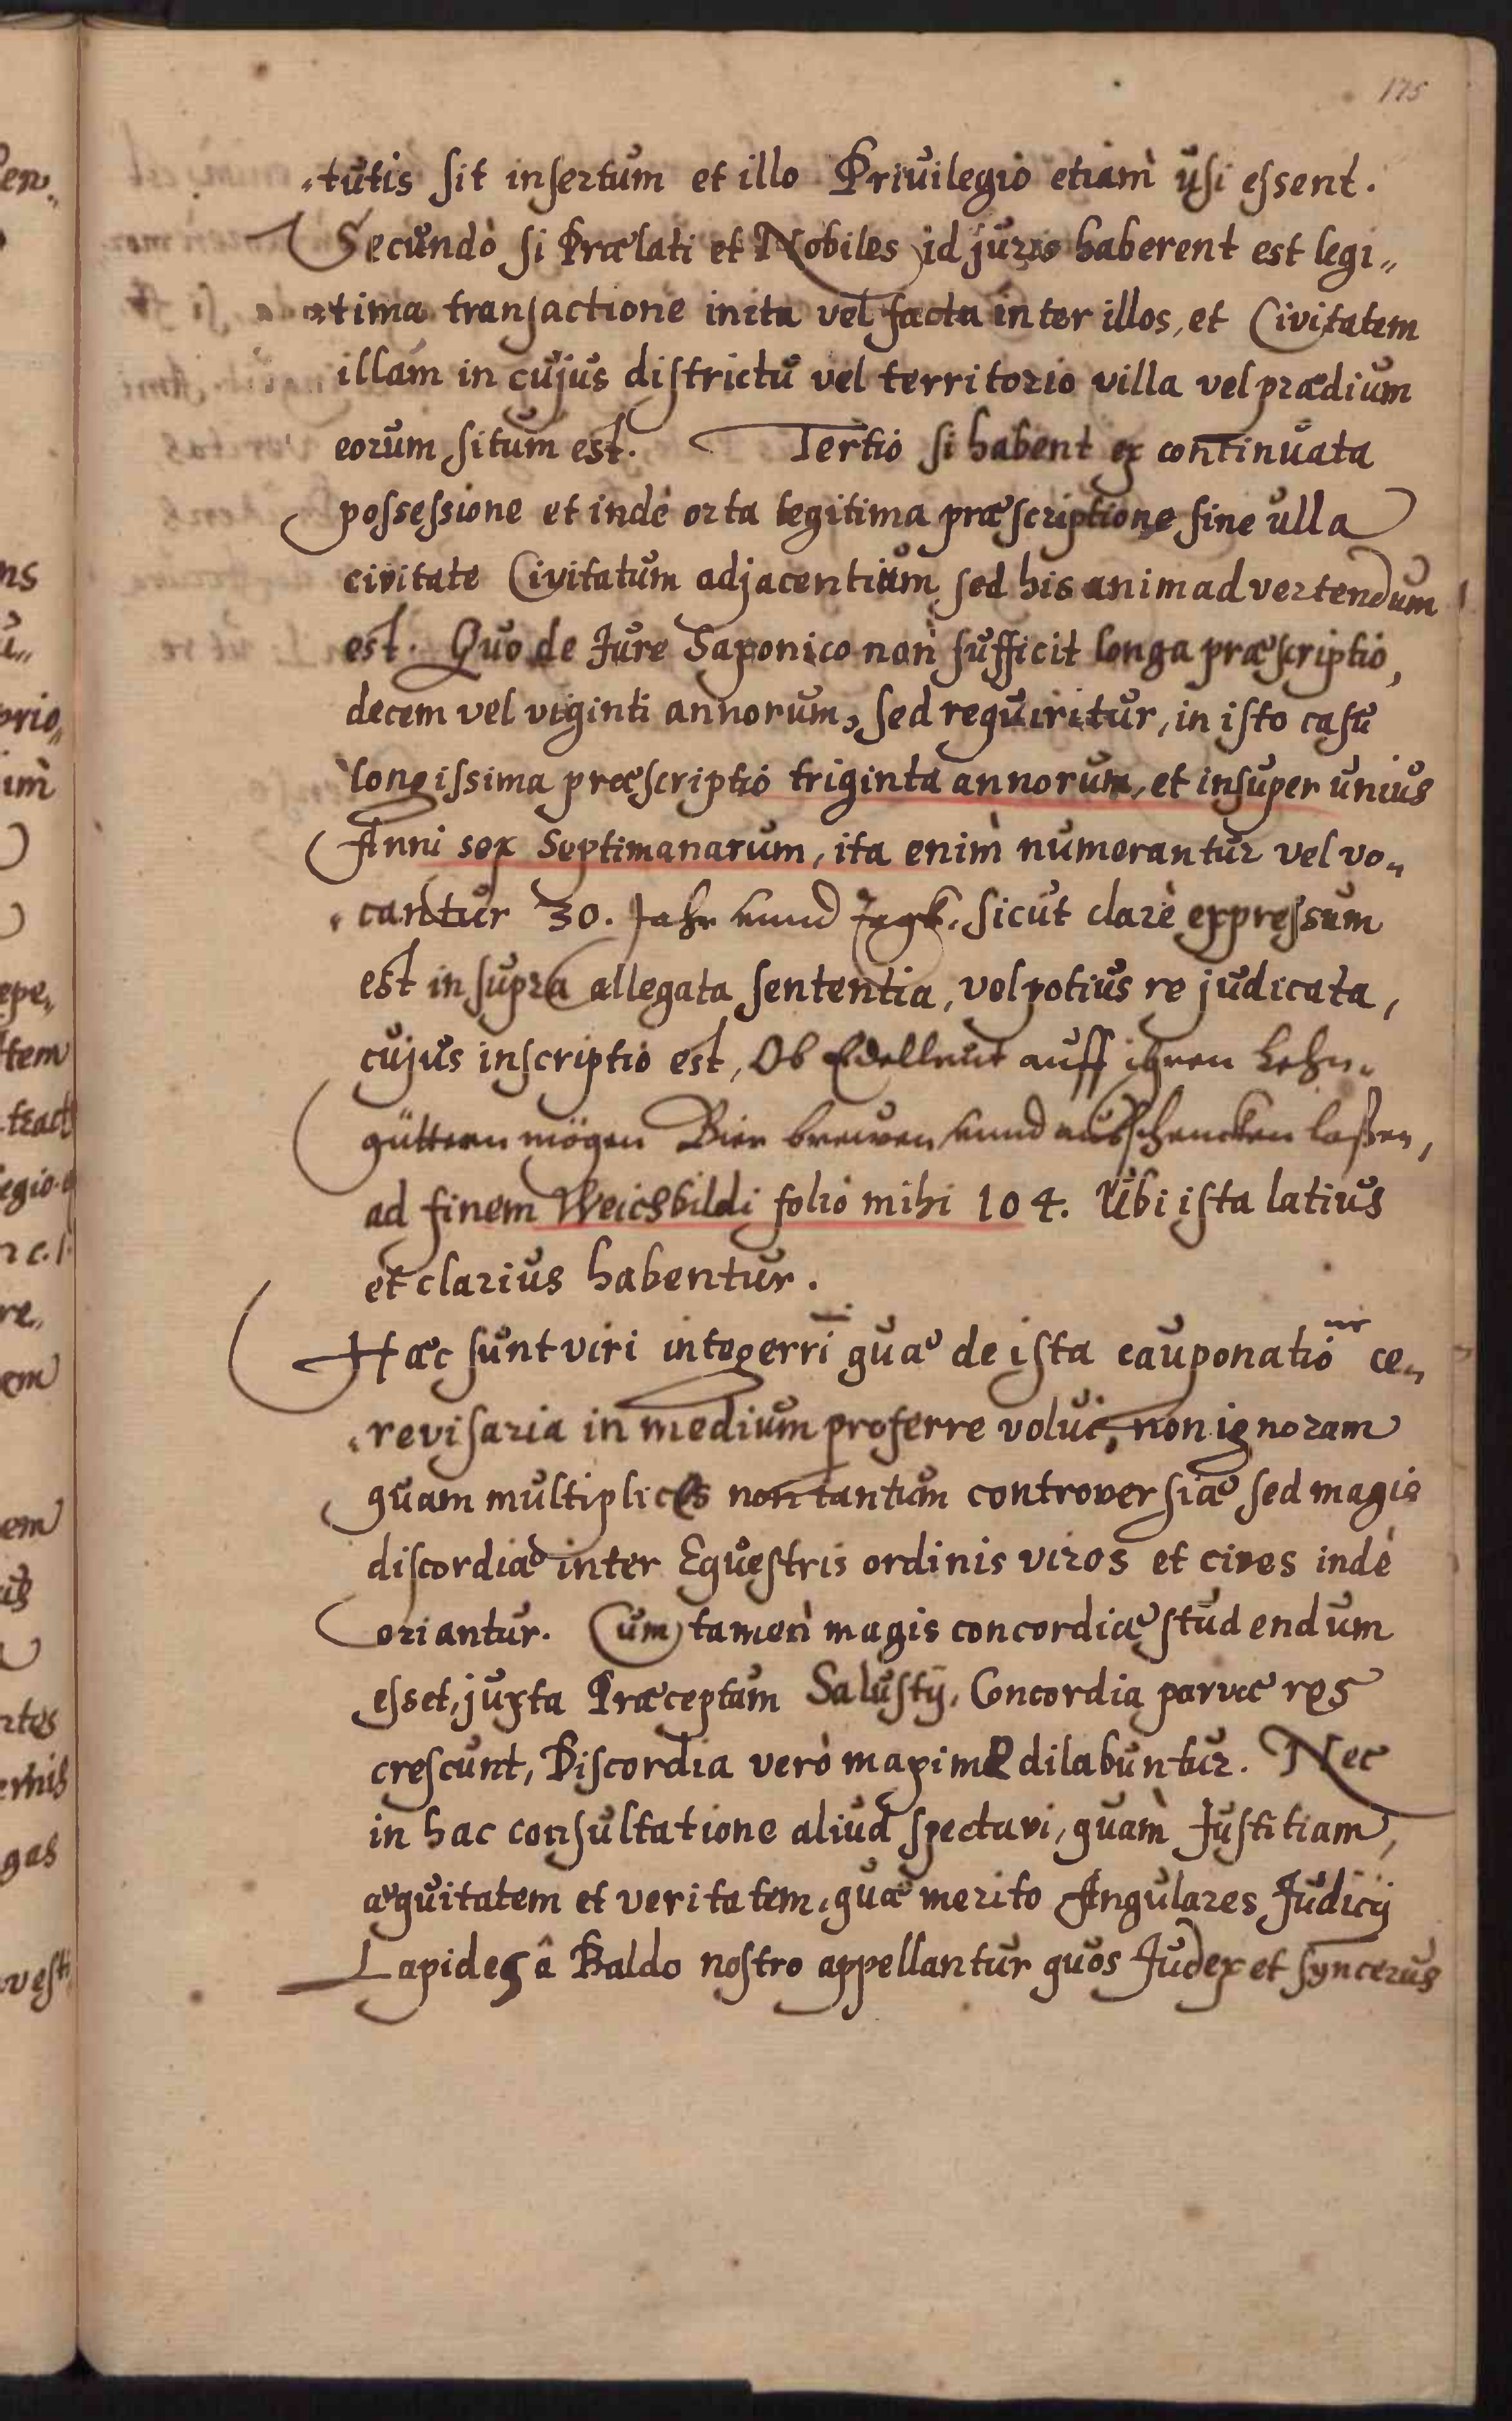 175
-tutis sit insertum et illo Privilegio etiam̀ usi essent.
Secundò si Prælati et Nobiles id juris haberent est legi„
„tima transactione inita vel facta inter illos, et Civitatem
illam in cujus districtu vel territorio villa vel prædium
eorum situm est. Tertiò si habent ex continuata
possessione et indè orta legitima præscriptione sine ulla
civitate Civitatum adjacentium, sed his animadvertendum
est. Quo de Jure Saxonico non̄ sufficit longa præscriptio,
decem vel viginti annorum, sed requiritur, in isto casu
longissima præscriptio triginta annorum, et insuper unius
Anni sex Septimanarum, ita enim̀ numerantur vel vo„
„cantur 30. Jahr unnd Jagk. sicut clarè expressum
est in supra allegata sententia, vel potius re judicata,
cujus inscriptio est, Ob Edelleut auff ihren Lehn„
güttern mögen Bier brewen unnd ausschencken laßen,
ad finem Weichbildi folio mihi 104. Ubi ista latius
et clarius habentur.
Hæc sunt viri integerri͞ quæ de ista cauponatio͞ ce„
„revisaria in medium proferre volui, non ignoram
quam multiplices non tantum controversiæ sed magis
discordiæ inter Equestris ordinis viros et cives indè
oriantur. Cum tamen̄ magis concordiæ studendum
esset, juxta Præceptum Salustij, Concordia parvæ res
crescunt, Discordia verò maximæ dilabuntur. Nec
in hac consultatione aliud spectavi, quam̀ Justitiam,
æquitatem et veritatem, quæ merito Angulares Judicij
Lapides â Baldo nostro appellantur quos Judex et syncerus